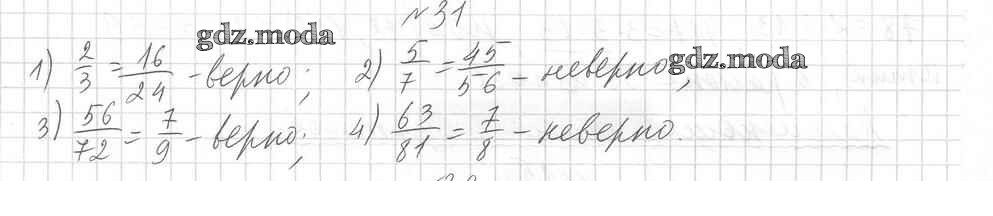 №31
gdz.moda
1) 2/3 = 16/24 - верно; 2) 5/7 = 45/56 - неверно;
gdz.moda
3) 56/72 = 7/9 - верно; 4) 63/81 = 7/8 - неверно.